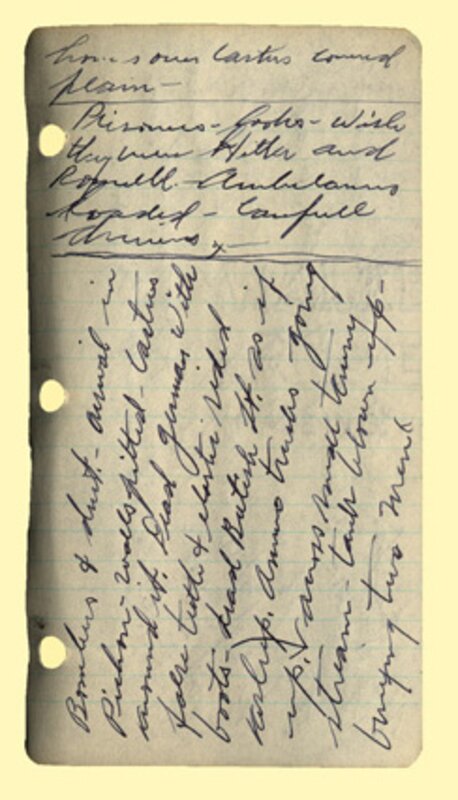 over cactus covered
plain —
Prisoners - looks - wish
they were Hitler and
Rommell. Ambulances
loaded - carefull
drivers —
Bombers & dust. - arrival in
Pichon - walls pitted - cactus
around it. Dead German with
false teeth & elastic sided
boots - dead British Lt. as if
asleep. Ammo trucks going
up. across small tawny
stream - tank blown up -
burying two men